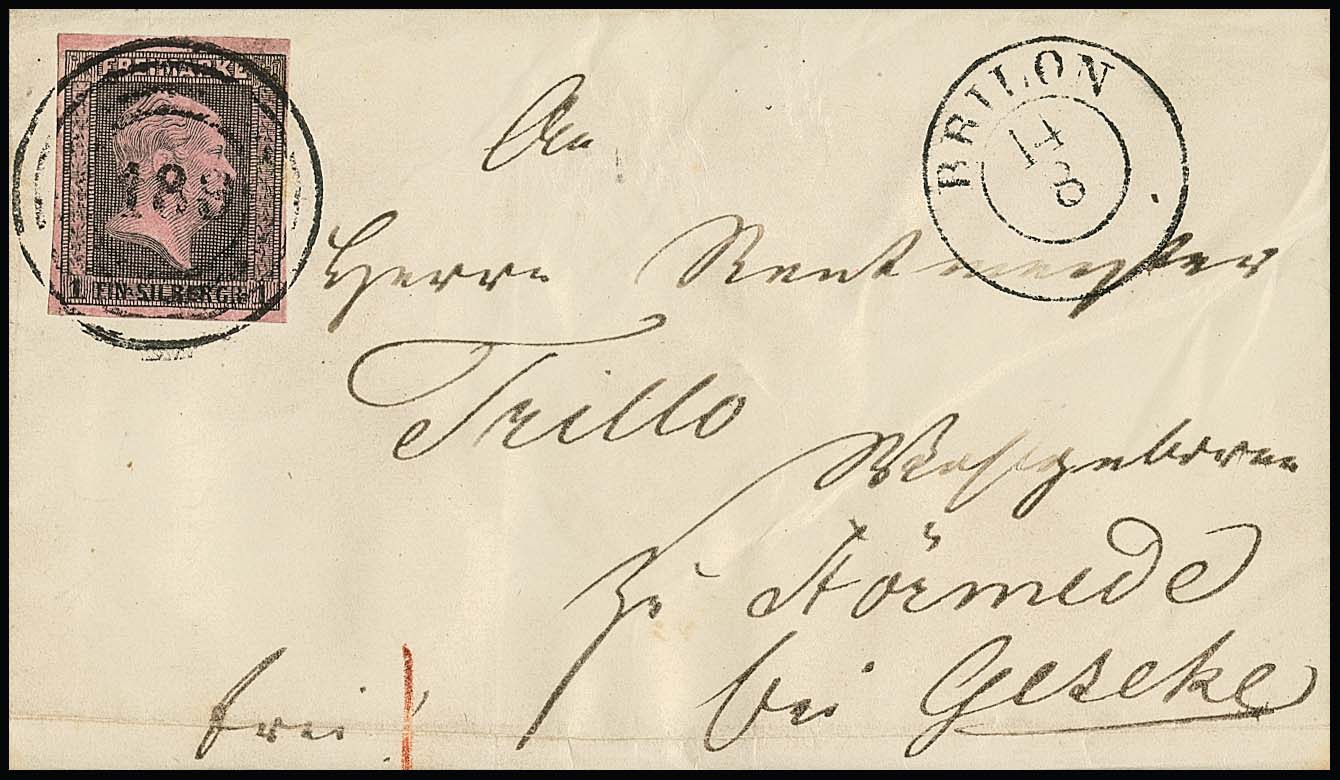 FREIMARKE
183
1 EIN-SILBERGR. 1
BRILON
14
8
An
Herrn Rentmeister
Trillo
Wohlgeboren
zu Störmede
bei Geseke
frei!